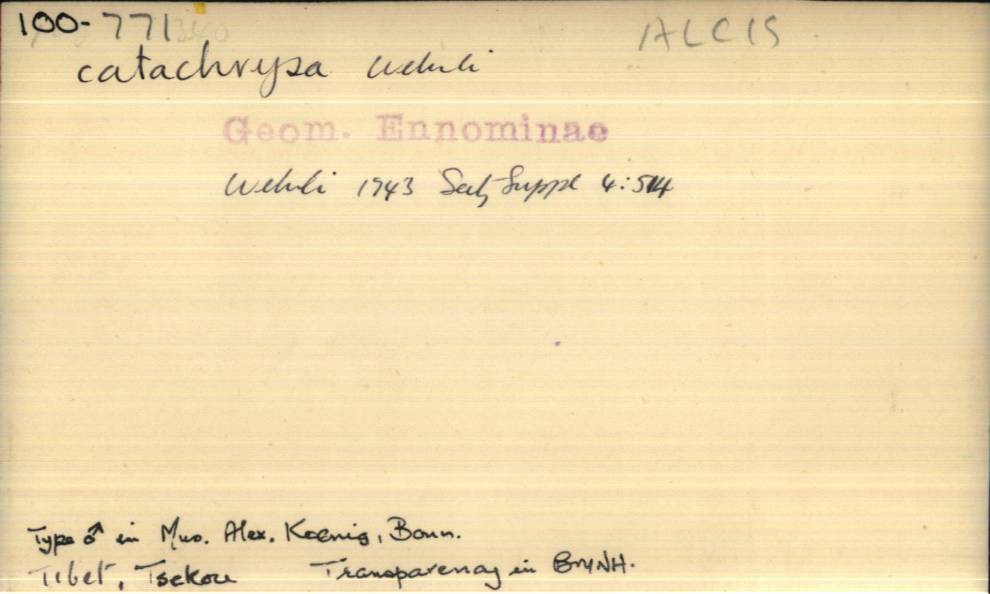 100-771 ALCIS
catachrysa Wehrli
Geom. Ennominae
Wehrli 1943 Seitz Suppl 4:514
Type ♂ in Mus. Alex. Koenig, Bonn.
Tibet, Tsekou Transparency in BMNH.